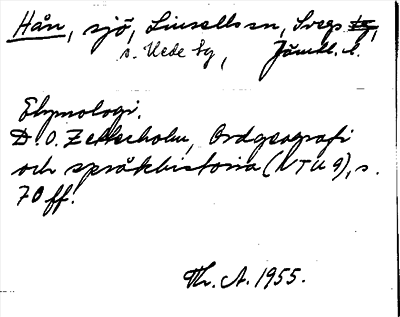 Hån, sjö, Linsells sn, Svegs tg,
s. Vede tg, Jämtl. l.
Etymologi.
D. O. Zetterholm, Ordgeografi
och språkhistoria (NTU 9), s.
70 ff.
Th. A. 1955.